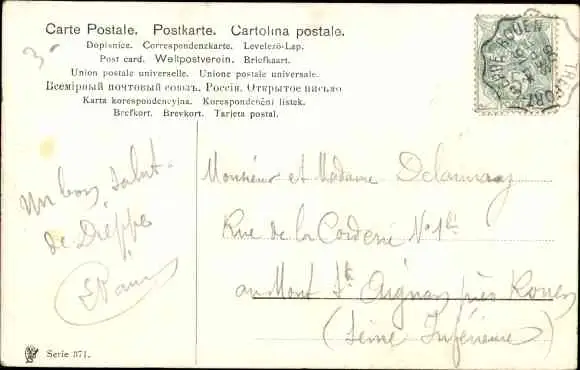 Carte Postale. Postkarte. Cartolina postale.
Dopisnice. Correspondenzkarte. Levelező-Lap.
Post card. Weltpostverein. Briefkaart.
Union postale universelle. Unione postale universale.
Всемірный почтовый союзъ. Россія. Открытое письмо
Karta korespondencyjna. Korespondenční lístek.
Brefkort. Brevkort. Tarjeta postal.
3-
Un bon salut
de Dieppe
Monsieur et Madame Delaunay
Rue de la Corderie N° 1
au Mont St Aignan près Rouen
(Seine Inférieure)
Serie 371.
ROUEN